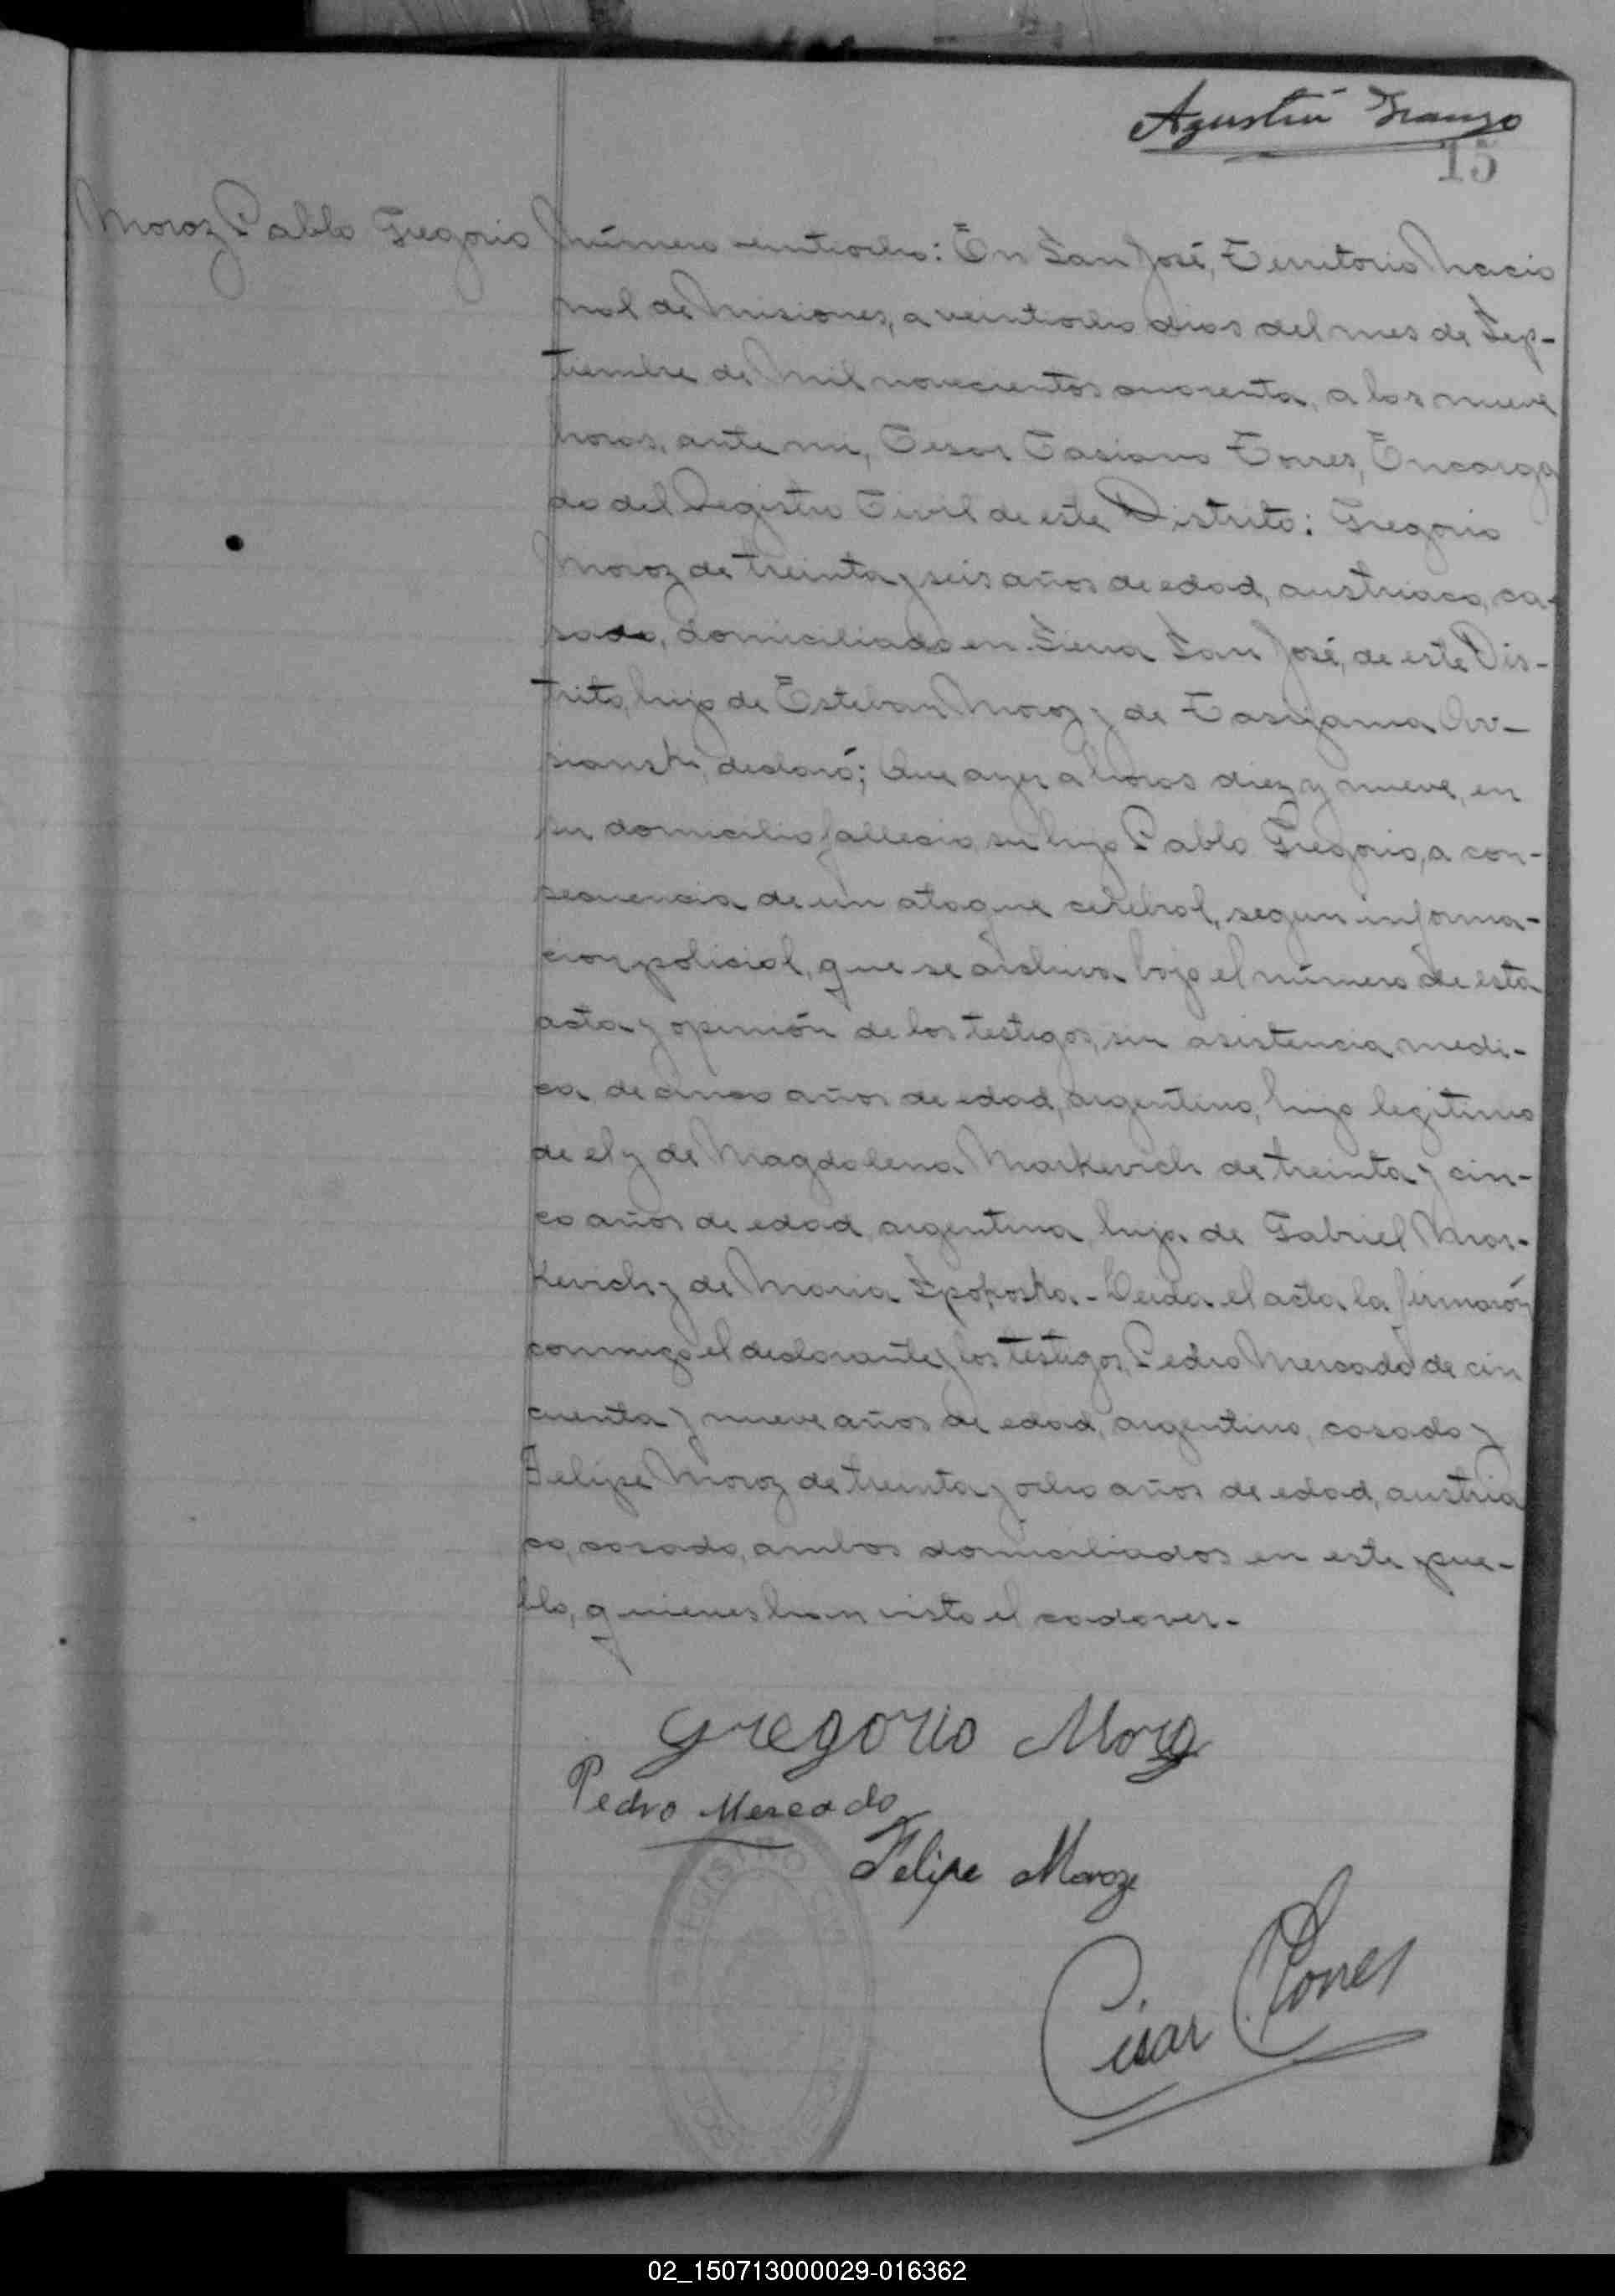 Agustín
15
Moroz Pablo Gregorio
Número veintiocho: En San José, Territorio Nacio
nal de Misiones, a veintiocho dias del mes de Sep-
tiembre de Mil novecientos cuarenta, a las nueve
horas, ante mi, Cesar Casiano Torres, Encarga
do del Registro Civil de este Distrito: Gregorio
Moroz de treinta y seis años de edad, austriaco, ca-
sado, domiciliado en Sierra San José, de este Dis-
trito, hijo de Esteban Moroz y de
declaró; Que ayer a horas diez y nueve, en
su domicilio fallecio su hijo Pablo Gregorio, a con-
secuencia de un ataque cerebral, segun informa-
cion policial, que se archiva bajo el número de esta
acta y opinión de los testigos, sin asistencia medi-
ca, de cinco años de edad, argentino, hijo legitimo
de el y de Magdalena Markevich de treinta y cin-
co años de edad, argentina, hija de Gabriel Mar-
kevich y de Maria - Leida el acta la firmarón
conmigo el declarante y los testigos, Pedro Mercado de cin
cuenta y nueve años de edad, argentino, casado y
Felipe Moroz de treinta y ocho años de edad, austria
co, casado, ambos domiciliados en este pue-
blo, quienes han visto el cadaver.-
Gregorio Moroz
Pedro Mercado
Felipe Moroz
César Torres
02_150713000029-016362